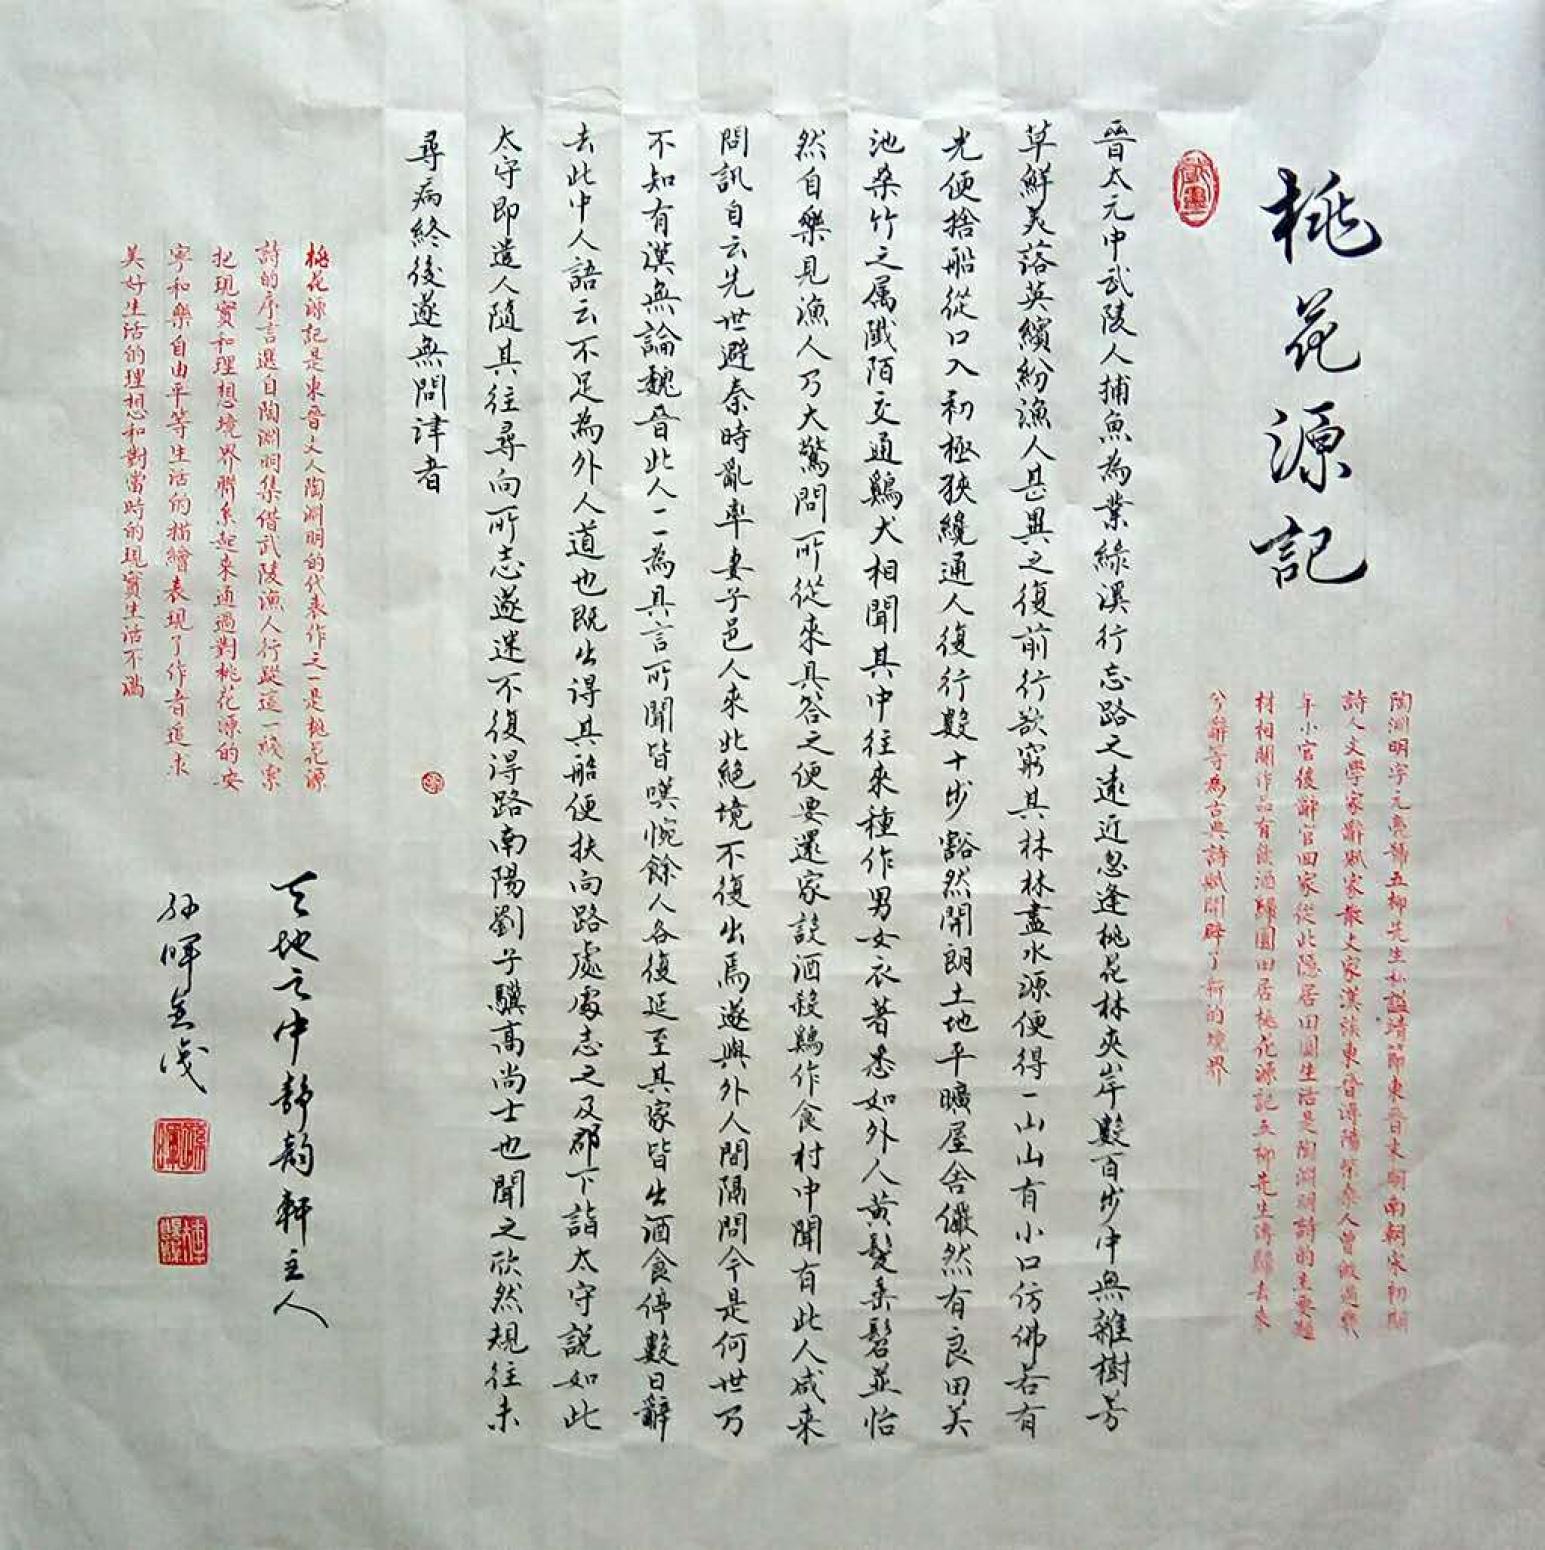 桃花源記
陶淵明字元亮號五柳先生私謚靖節東晉末期南朝宋初期
詩人文學家辭賦家散文家漢族東晉潯陽柴桑人曾做過幾
年小官後辭官回家從此隱居田園生活是陶淵明詩的主要題
材相關作品有飲酒歸園田居桃花源記五柳先生傳歸去來
兮辭等為古典詩賦開辟了新的境界
晉太元中武陵人捕魚為業緣溪行忘路之遠近忽逢桃花林夾岸數百步中無雜樹芳
草鮮美落英繽紛漁人甚異之復前行欲窮其林林盡水源便得一山山有小口仿佛若有
光便捨船從口入初極狹纔通人復行數十步豁然開朗土地平曠屋舍儼然有良田美
池桑竹之属阡陌交通鷄犬相聞其中往來種作男女衣著悉如外人黃髮垂髫並怡
然自樂見漁人乃大驚問所從來具答之便要還家設酒殺鷄作食村中聞有此人咸来
問訊自云先世避秦時亂率妻子邑人來此絕境不復出焉遂與外人間隔問今是何世乃
不知有漢無論魏晉此人一一為具言所聞皆嘆惋餘人各復延至其家皆出酒食停數日辭
去此中人語云不足為外人道也既出得其船便扶向路處處志之及郡下詣太守說如此
太守即遣人隨其往尋向所志遂迷不復得路南陽劉子驥高尚士也聞之欣然規往未
尋病終後遂無問津者
桃花源記是東晉文人陶淵明的代表作之一是桃花源
詩的序言選自陶淵明集借武陵漁人行蹤這一線索
把現實和理想境界聯系起來通過對桃花源的安
寧和樂自由平等生活的描繪表現了作者追求
美好生活的理想和對當時的現實生活不滿
天地之中靜韵軒主人
孫暉